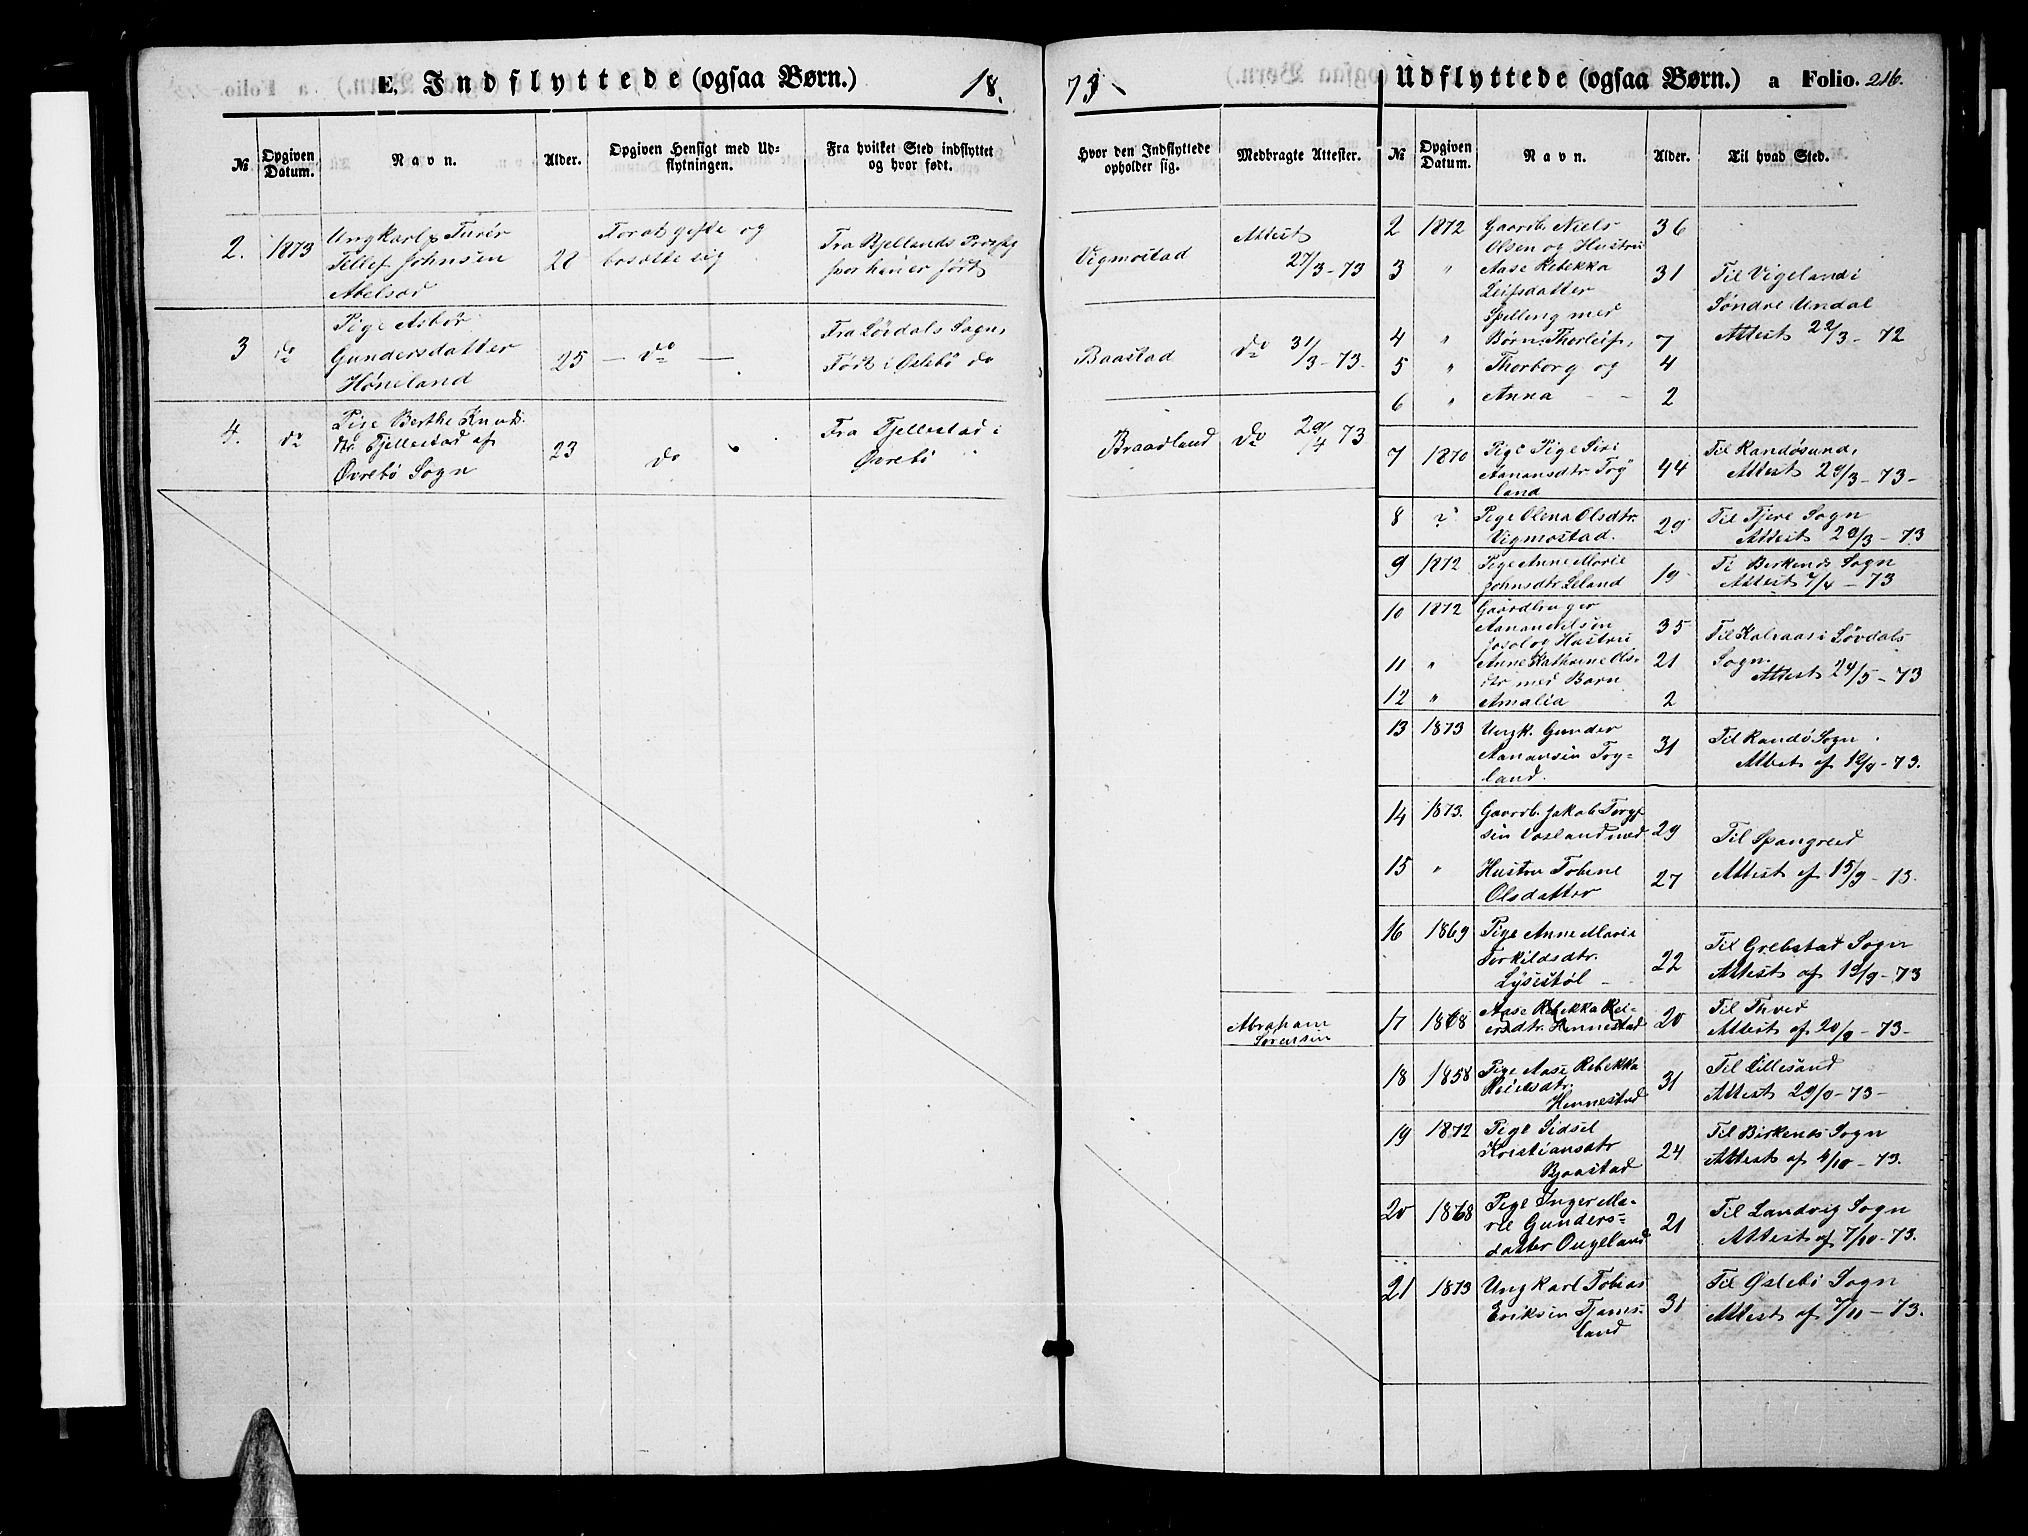 E. Indflyttede (ogsaa Børn.)
18.
73
Udflyttede (ogsaa Børn.) a Folio. 216.
№ Opgiven Datum. Navn. Alder. Opgiven Hensigt med Ud-
flytningen.
Fra hvilket Sted indflyttet
og hvor født.
Hvor den Indflyttede
opholder sig.
Medbragte Attester.
№ Opgiven Datum. Navn. Alder. Til hvad Sted.
2. 1873 Ungkarl
Tellef Johnsen
Abelsod
28
For at gifte og
bosætte sig
Fra Bjellands Prgj
hvor han er født
Vigmostad
Attest
27/3-73
3 do Pige Asbor
Gundersdatter
Høneland
25 — do —
Fra Lövdals Sogn,
Født i Öslebö do
Baastad
do 31/3-73.
4. do Pige Berthe Knuds
dtr Fjellestad af
Øvrebö Sogn
23
do
Fra Fjellestad i
Øvrebö
Braadland
do 29/4 73
Abraham
Sörensen
2 1872 Gaardb. Niels 36
Olsen og Hustru
3 " Aase Rebekka 31
Leifsdatter
Spilling med
4 " Børn Thorleif, 7
5 " Thorborg og 4
6 " Anna - - 2
Til Vigeland i
Söndre Undal
Attest 22/3 - 72
7 1870 Pige Pige Siri
Aanansdtr Tryg
land
44
Til Randösund,
Attest 29/3-73-
8 ? Pige Olena Olsdtr.
Vigmostad.
29
Til Fjere Sogn
Attest 29/3-73
9 1872 Pige Anne Marie
Johnsdtr Leland
19
Ti Birkends Sogn
Attest 7/4 - 73
10 1872 Gaardbruger
Aanan Nilsen
og Hustru
35
11 " Anne Kathrine Ols- 21
dtr med Barn
12 " Amalia 2
Til Kalraas i Lövdals
Sogn.
Attest 24/5-73
13 1873 Ungk. Gunder
Aanansen Tryg-
land.
31
Til Randö Sogn
Attest af
14 1873. Gaardb. Jakob
med
29
15 " Hustru Tobine
Olsdatter
27
Til Spangreid
Attest af 15/9-73.
16 1869 Pige Anne Marie
Torkildsdtr.
Lysestöl -
22
Til Grebstad Sogn
Attest af 19/9-73
17 1868 Aase Rebekka Rei-
ersdtr. Hennestad
20
Til Thved
Attest af 20/9-73-
18 1858 Pige Aase Rebekka
Reiersdtr.
Hennestad
31
Til Lillesand
Attest 29/9-73-
19 1872 Pige Sidsel
Kristiansdtr
Bjaastad
24
Til Birkends Sogn
Attest af 4/10-73.
20 1868 Pige Inger Ma-
rie Gunders-
datter Ougland
21
Til Landvig Sogn
Attest af 7/10-73.
21 1873 Ungkarl Tobias
Eriksen Tjoms-
land
31
Til Öslebö Sogn
Attest af 7/11-73.